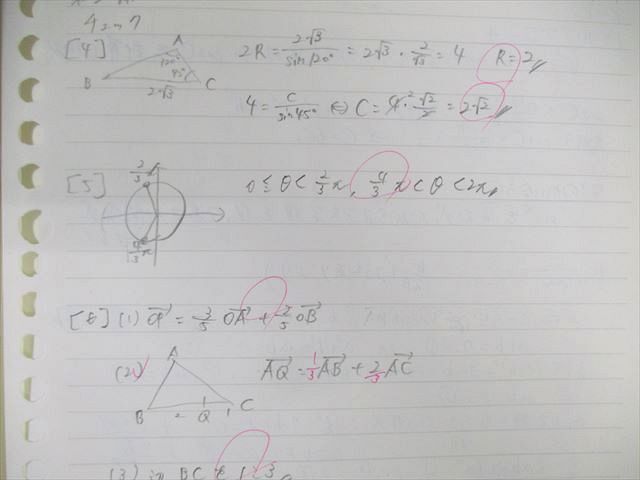 4 sin 7
[4]
A
120°
45°
B
C
2√3
2R = 2√3/sin120° = 2√3 · 2/√3 = 4
R = 2
4 = C/sin45° ⇔ C = 4 · √2/2 = 2√2
[5]
2/3 π
4/3 π
0 ≦ θ < 2/3 π, 4/3 π < θ < 2π
[6] (1) OP = 3/5 OA + 2/5 OB
(2)
A
B
Q
C
AQ = 1/3 AB + 2/3 AC
(3)
BC